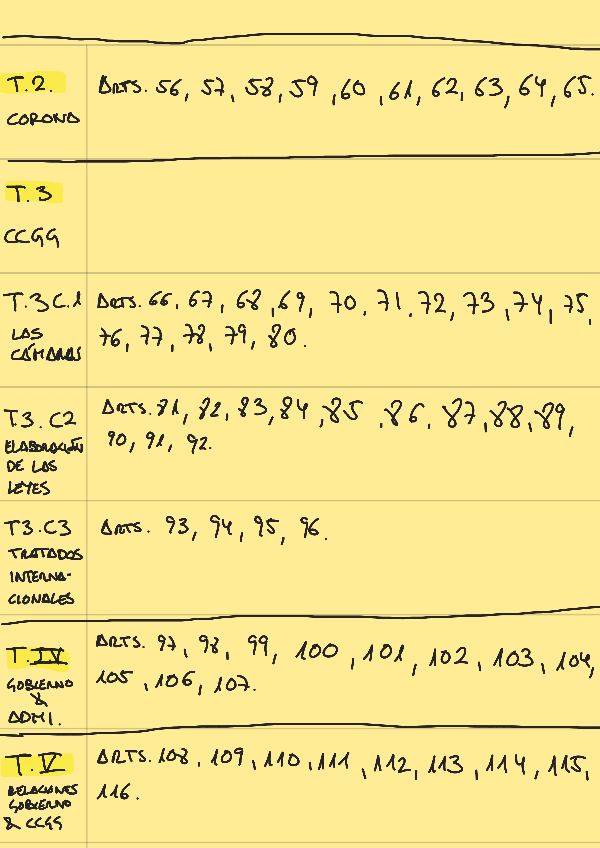 T.2. ARTS. 56, 57, 58, 59, 60, 61, 62, 63, 64, 65.
CORONA
T.3
CCGG
T.3C.1 ARTS. 66, 67, 68, 69, 70, 71, 72, 73, 74, 75,
LAS 76, 77, 78, 79, 80.
CÁMARAS
T3.C2 ARTS. 81, 82, 83, 84, 85, 86, 87, 88, 89,
ELABORACIÓN 90, 91, 92.
DE LAS
LEYES
T3.C3 ARTS. 93, 94, 95, 96.
TRATADOS
INTERNA-
CIONALES
T.IV ARTS. 97, 98, 99, 100, 101, 102, 103, 104,
GOBIERNO 105, 106, 107.
&
ADMI.
T.V ARTS. 108, 109, 110, 111, 112, 113, 114, 115,
RELACIONES 116.
GOBIERNO
& CCGG